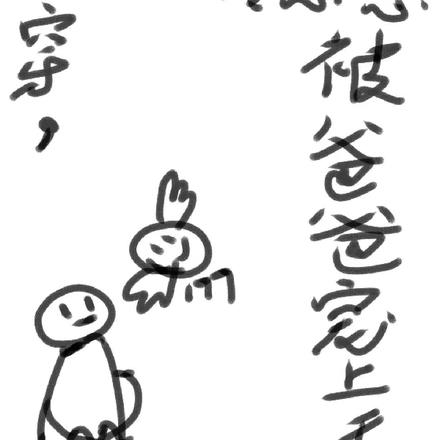 被爸爸宠上
穿，